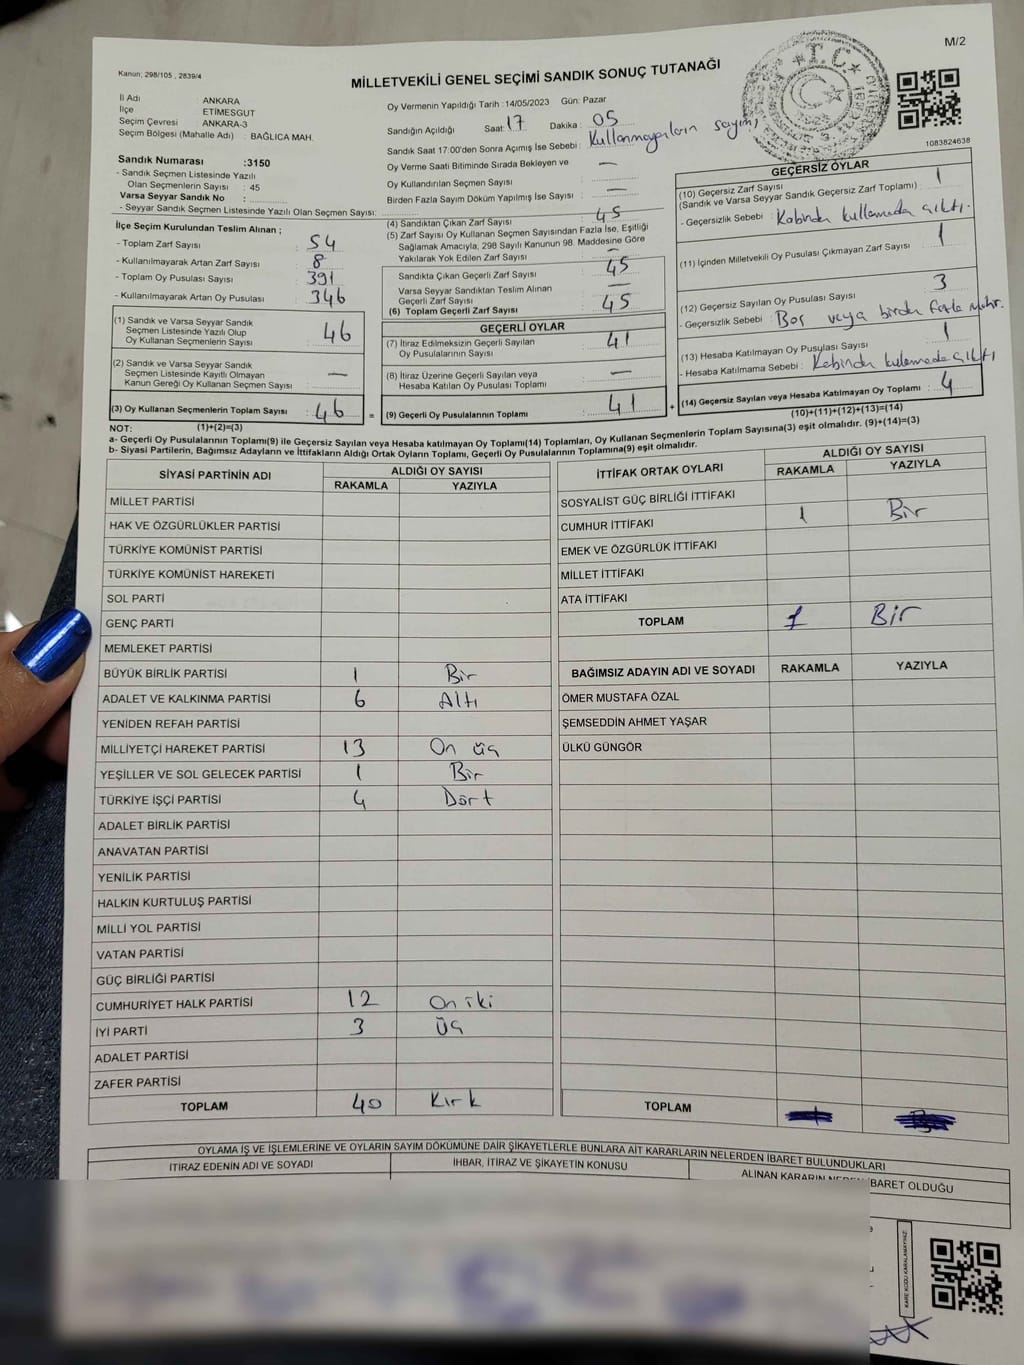 M/2
Kanun; 298/105 , 2839/4
MİLLETVEKİLİ GENEL SEÇİMİ SANDIK SONUÇ TUTANAĞI
T.C.
1083824638
İl Adı : ANKARA
İlçe : ETİMESGUT
Seçim Çevresi : ANKARA-3
Seçim Bölgesi (Mahalle Adı) : BAĞLICA MAH.
Sandık Numarası :3150
- Sandık Seçmen Listesinde Yazılı
Olan Seçmenlerin Sayısı : 45
Varsa Seyyar Sandık No :
- Seyyar Sandık Seçmen Listesinde Yazılı Olan Seçmen Sayısı:
Oy Vermenin Yapıldığı Tarih :14/05/2023 Gün: Pazar
Sandığın Açıldığı Saat: 17 Dakika : 05
Sandık Saat 17:00'den Sonra Açımış İse Sebebi : Kullanmayanların sayımı
Oy Verme Saati Bitiminde Sırada Bekleyen ve —
Oy Kullandırılan Seçmen Sayısı
Birden Fazla Sayım Döküm Yapılmış İse Sayısı : —
İlçe Seçim Kurulundan Teslim Alınan ;
- Toplam Zarf Sayısı : 54
- Kullanılmayarak Artan Zarf Sayısı : 8
- Toplam Oy Pusulası Sayısı : 391
- Kullanılmayarak Artan Oy Pusulası : 346
(1) Sandık ve Varsa Seyyar Sandık
Seçmen Listesinde Yazılı Olup
Oy Kullanan Seçmenlerin Sayısı : 46
(2) Sandık ve Varsa Seyyar Sandık
Seçmen Listesinde Kayıtlı Olmayan
Kanun Gereği Oy Kullanan Seçmen Sayısı : —
(3) Oy Kullanan Seçmenlerin Toplam Sayısı : 46
(1)+(2)=(3)
(4) Sandıktan Çıkan Zarf Sayısı : 45
(5) Zarf Sayısı Oy Kullanan Seçmen Sayısından Fazla İse, Eşitliği
Sağlamak Amacıyla, 298 Sayılı Kanunun 98. Maddesine Göre
Yakılarak Yok Edilen Zarf Sayısı : —
Sandıkta Çıkan Geçerli Zarf Sayısı : 45
Varsa Seyyar Sandıktan Teslim Alınan
Geçerli Zarf Sayısı : —
(6) Toplam Geçerli Zarf Sayısı : 45
GEÇERLİ OYLAR
(7) İtiraz Edilmeksizin Geçerli Sayılan
Oy Pusulalarının Sayısı : 41
(8) İtiraz Üzerine Geçerli Sayılan veya
Hesaba Katılan Oy Pusulası Toplamı : —
= (9) Geçerli Oy Pusulalarının Toplamı : 41
GEÇERSİZ OYLAR
(10) Geçersiz Zarf Sayısı : 1
(Sandık ve Varsa Seyyar Sandık Geçersiz Zarf Toplamı)
- Geçersizlik Sebebi : Kabinden kullamada çıktı.
(11) İçinden Milletvekili Oy Pusulası Çıkmayan Zarf Sayısı : 1
(12) Geçersiz Sayılan Oy Pusulası Sayısı : 3
- Geçersizlik Sebebi : Boş veya birden fazla mühr.
(13) Hesaba Katılmayan Oy Pusulası Sayısı : 1
- Hesaba Katılmama Sebebi : Kabinden kulamada çıktı
+ (14) Geçersiz Sayılan veya Hesaba Katılmayan Oy Toplamı : 4
(10)+(11)+(12)+(13)=(14)
NOT:
a- Geçerli Oy Pusulalarının Toplamı(9) ile Geçersiz Sayılan veya Hesaba katılmayan Oy Toplamı(14) Toplamları, Oy Kullanan Seçmenlerin Toplam Sayısına(3) eşit olmalıdır. (9)+(14)=(3)
b- Siyasi Partilerin, Bağımsız Adayların ve İttifakların Aldığı Oy Oyların Toplamı, Geçerli Oy Pusulalarının Toplamına(9) eşit olmalıdır.
SİYASİ PARTİNİN ADI ALDIĞI OY SAYISI
RAKAMLA YAZIYLA
MİLLET PARTİSİ
HAK VE ÖZGÜRLÜKLER PARTİSİ
TÜRKİYE KOMÜNİST PARTİSİ
TÜRKİYE KOMÜNİST HAREKETİ
SOL PARTİ
GENÇ PARTİ
MEMLEKET PARTİSİ
BÜYÜK BİRLİK PARTİSİ 1 Bir
ADALET VE KALKINMA PARTİSİ 6 Altı
YENİDEN REFAH PARTİSİ
MİLLİYETÇİ HAREKET PARTİSİ 13 On üç
YEŞİLLER VE SOL GELECEK PARTİSİ 1 Bir
TÜRKİYE İŞÇİ PARTİSİ 4 Dört
ADALET BİRLİK PARTİSİ
ANAVATAN PARTİSİ
YENİLİK PARTİSİ
HALKIN KURTULUŞ PARTİSİ
MİLLİ YOL PARTİSİ
VATAN PARTİSİ
GÜÇ BİRLİĞİ PARTİSİ
CUMHURİYET HALK PARTİSİ 12 On iki
İYİ PARTİ 3 Üç
ADALET PARTİSİ
ZAFER PARTİSİ
TOPLAM 40 Kırk
İTTİFAK ORTAK OYLARI ALDIĞI OY SAYISI
RAKAMLA YAZIYLA
SOSYALİST GÜÇ BİRLİĞİ İTTİFAKI
CUMHUR İTTİFAKI 1 Bir
EMEK VE ÖZGÜRLÜK İTTİFAKI
MİLLET İTTİFAKI
ATA İTTİFAKI
TOPLAM 1 Bir
BAĞIMSIZ ADAYIN ADI VE SOYADI RAKAMLA YAZIYLA
ÖMER MUSTAFA ÖZAL
ŞEMSEDDİN AHMET YAŞAR
ÜLKÜ GÜNGÖR
TOPLAM
OYLAMA İŞ VE İŞLEMLERİNE VE OYLARIN SAYIM DÖKÜMÜNE DAİR ŞİKAYETLERLE BUNLARA AİT KARARLARIN NELERDEN İBARET BULUNDUKLARI
İTİRAZ EDENİN ADI VE SOYADI İHBAR, İTİRAZ VE ŞİKAYETİN KONUSU ALINAN KARARIN NEDEN İBARET OLDUĞU
KARE KODU KARALAMAYINIZ